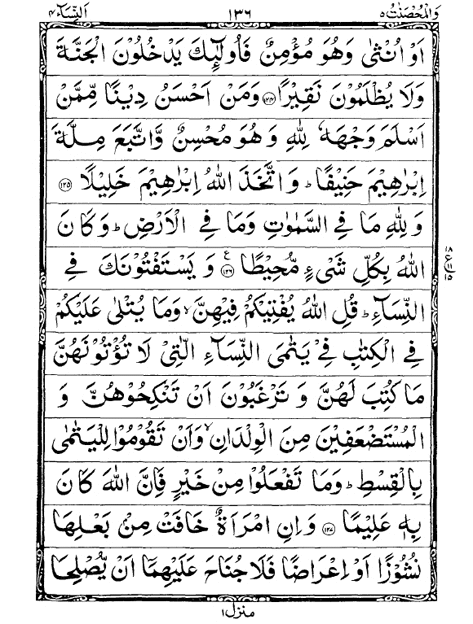 وَالْمُحْصَنٰتُ ٥ ١٣٦ اَلنِّسَآء ٤
اَوْ اُنْثٰى وَهُوَ مُؤْمِنٌ فَاُولٰٓئِكَ يَدْخُلُوْنَ الْجَنَّةَ
وَلَا يُظْلَمُوْنَ نَقِيْرًا ﴿١٢٤﴾ وَمَنْ اَحْسَنُ دِيْنًا مِّمَّنْ
اَسْلَمَ وَجْهَهٗ لِلّٰهِ وَهُوَ مُحْسِنٌ وَّاتَّبَعَ مِلَّةَ
اِبْرٰهِيْمَ حَنِيْفًا ؕ وَاتَّخَذَ اللّٰهُ اِبْرٰهِيْمَ خَلِيْلًا ﴿١٢٥﴾
وَلِلّٰهِ مَا فِى السَّمٰوٰتِ وَمَا فِى الْاَرْضِ ؕ وَكَانَ
اللّٰهُ بِكُلِّ شَىْءٍ مُّحِيْطًا ﴿١٢٦﴾ ع وَيَسْتَفْتُوْنَكَ فِى
١٨ ع ١١ ١٥
النِّسَآءِ ؕ قُلِ اللّٰهُ يُفْتِيْكُمْ فِيْهِنَّ ۙ وَمَا يُتْلٰى عَلَيْكُمْ
فِى الْكِتٰبِ فِىْ يَتٰمَى النِّسَآءِ الّٰتِىْ لَا تُؤْتُوْنَهُنَّ
مَا كُتِبَ لَهُنَّ وَتَرْغَبُوْنَ اَنْ تَنْكِحُوْهُنَّ وَ
الْمُسْتَضْعَفِيْنَ مِنَ الْوِلْدَانِ ۙ وَاَنْ تَقُوْمُوْا لِلْيَتٰمٰى
بِالْقِسْطِ ؕ وَمَا تَفْعَلُوْا مِنْ خَيْرٍ فَاِنَّ اللّٰهَ كَانَ
بِهٖ عَلِيْمًا ﴿١٢٧﴾ وَاِنِ امْرَاَةٌ خَافَتْ مِنْۢ بَعْلِهَا
نُشُوْزًا اَوْ اِعْرَاضًا فَلَا جُنَاحَ عَلَيْهِمَاۤ اَنْ يُّصْلِحَا
منزل ١